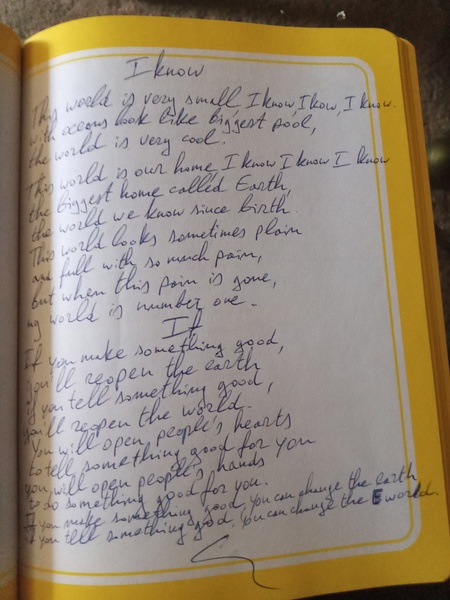 I know
This world is very small, I know, I kow, I know.
with oceans look like biggest pool,
the world is very cool.
This world is our home, I know I know I know
the biggest home called Earth,
the world we know since birth.
This world looks sometimes plain
and full with so much pain,
but when this pain is gone,
my world is number one.
If
If you make something good,
you'll reopen the earth
if you tell something good,
you'll reopen the world.
You will open people's hearts
to tell something good for you
you will open people's hands
to do something good for you.
If you make something good, you can change the earth
If you tell something good. you can change the E world.